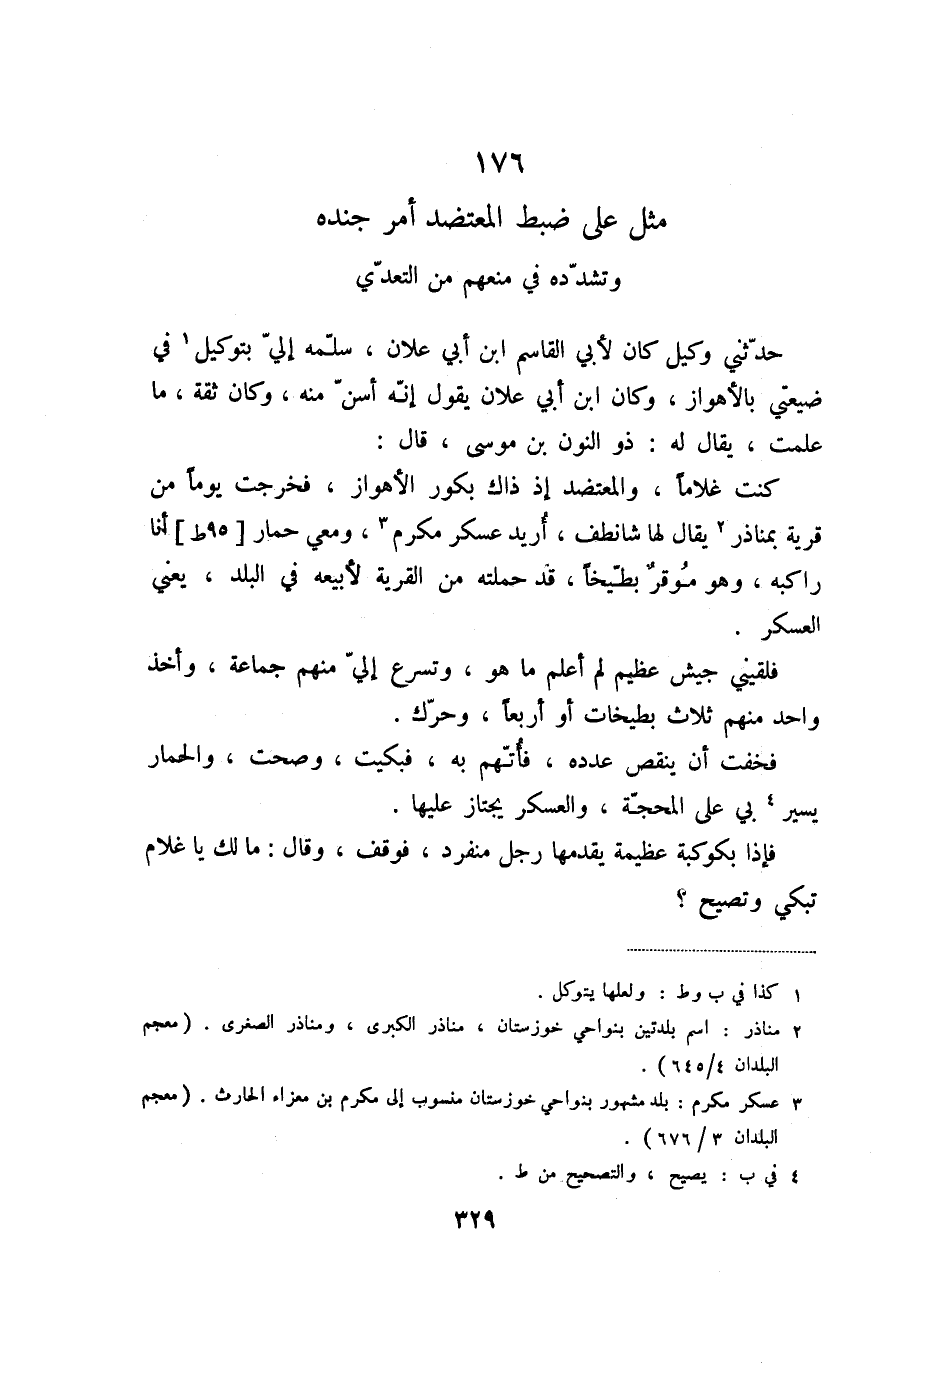 ١٧٦
مثل على ضبط المعتضد أمر جنده
وتشدّده في منعهم من التعدّي
حدّثني وكيل كان لأبي القاسم ابن أبي علان ، سلّمه إليّ بتوكيل١ في
ضيعتي بالأهواز ، وكان ابن أبي علان يقول إنّه أسنّ منه ، وكان ثقة ، ما
علمت ، يقال له : ذو النون بن موسى ، قال :
كنت غلاماً ، والمعتضد إذ ذاك بكور الأهواز ، فخرجت يوماً من
قرية بمناذر٢ يقال لها شانطف ، أُريد عسكر مكرم٣ ، ومعي حمار [ ٩٥ط ] أنا
راكبه ، وهو مُوقرٌ بطّيخاً ، قد حملته من القرية لأبيعه في البلد ، يعني
العسكر .
فلقيني جيش عظيم لم أعلم ما هو ، وتسرع إليّ منهم جماعة ، وأخذ
واحد منهم ثلاث بطيخات أو أربعاً ، وحرّك .
فخفت أن ينقص عدده ، فأُتّهم به ، فبكيت ، وصحت ، والحمار
يسير٤ بي على المحجّة ، والعسكر يجتاز عليها .
فإذا بكوكبة عظيمة يقدمها رجل منفرد ، فوقف ، وقال : ما لك يا غلام
تبكي وتصيح ؟
١ كذا في ب وط : ولعلها يتوكل .
٢ مناذر : اسم بلدتين بنواحي خوزستان ، مناذر الكبرى ، ومناذر الصغرى . ( معجم
البلدان ٤/ ٦٤٥ ) .
٣ عسكر مكرم : بلد مشهور بنواحي خوزستان منسوب إلى مكرم بن معزاء الحارث . ( معجم
البلدان ٣ / ٦٧٦ ) .
٤ في ب : يصيح ، والتصحيح من ط .
٣٢٩